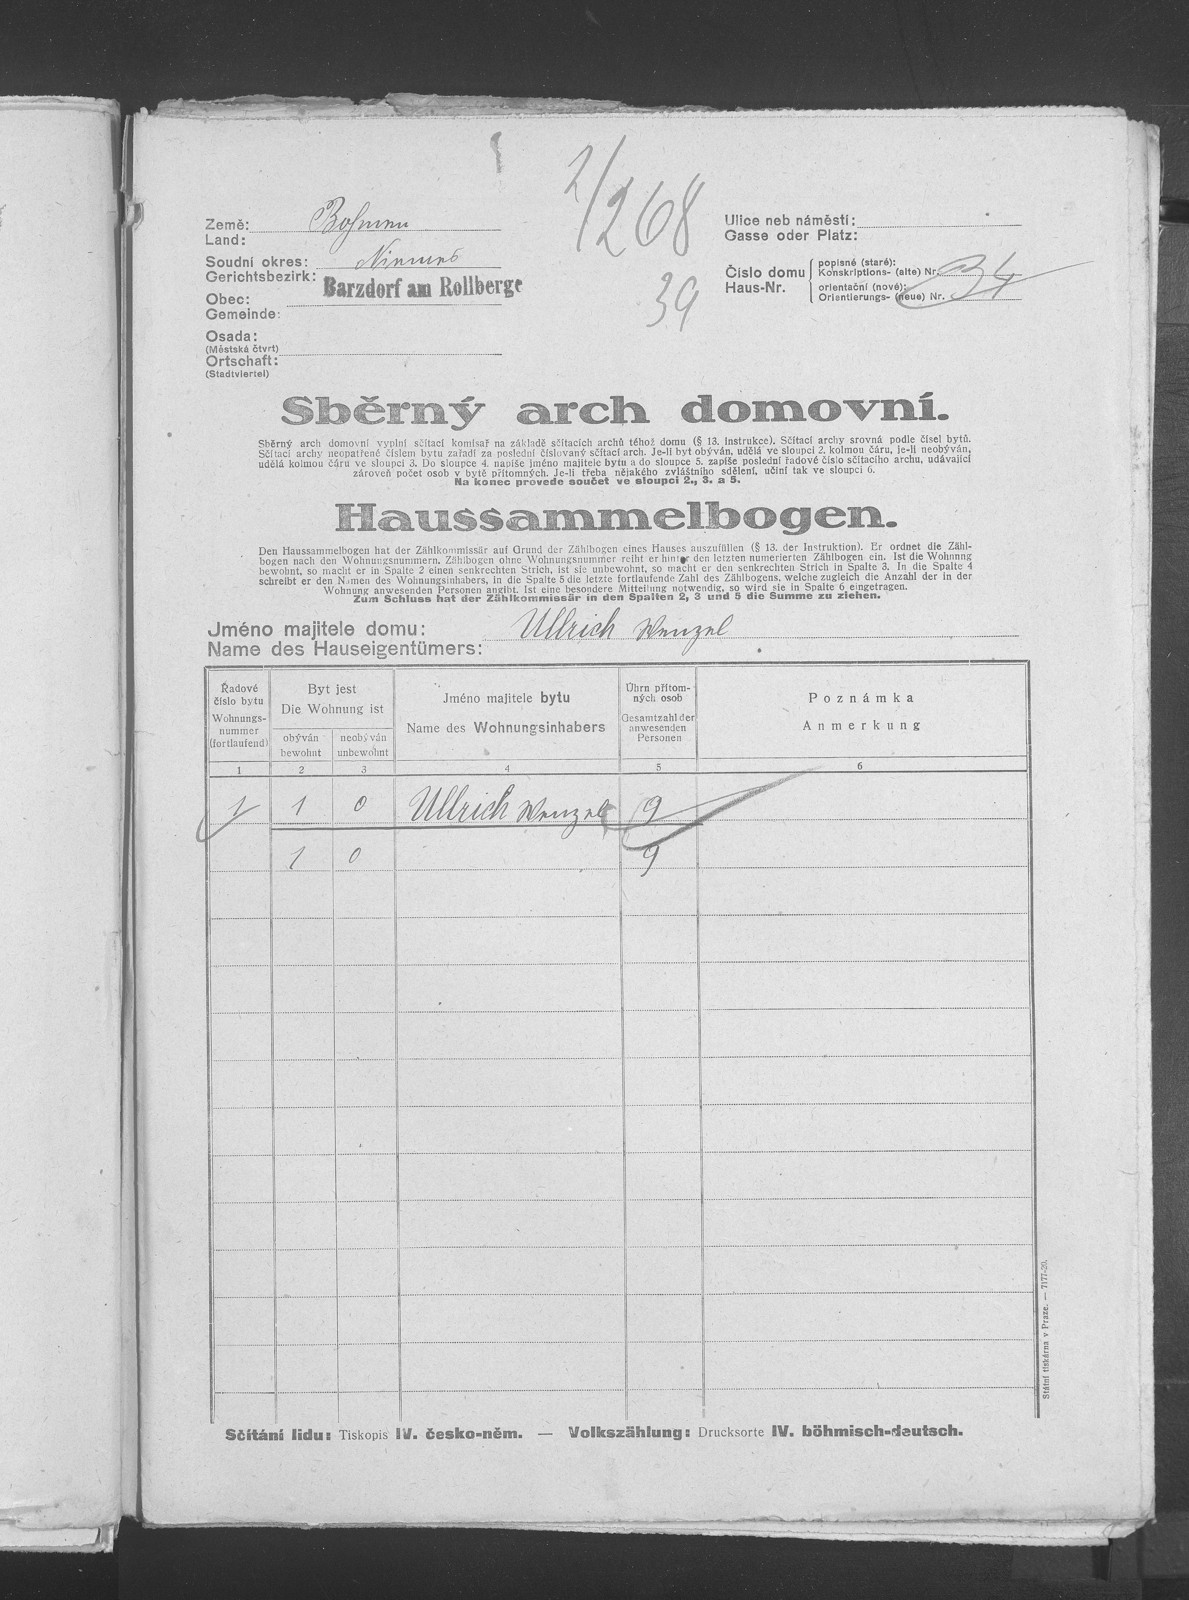 2/268
39
Země: Böhmen
Land:
Soudní okres: Niemes
Gerichtsbezirk:
Barzdorf am Rollberge
Obec:
Gemeinde:
Osada:
(Městská čtvrt)
Ortschaft:
(Stadtviertel)
Ulice neb náměstí:
Gasse oder Platz:
Číslo domu
Haus-Nr.
popisné (staré):
Konskriptions- (alte) Nr. 34
orientační (nové):
Orientierungs- (neue) Nr.
Sběrný arch domovní.
Sběrný arch domovní vyplní sčítací komisař na základě sčítacích archů téhož domu (§ 13. instrukce). Sčítací archy srovná podle čísel bytů.
Sčítací archy neopatřené číslem bytu zařadí za poslední číslovaný sčítací arch. Je-li byt obýván, udělá ve sloupci 2. kolmou čáru, je-li neobýván,
udělá kolmou čáru ve sloupci 3. Do sloupce 4. napíše jméno majitele bytu a do sloupce 5. zapíše poslední řadové číslo sčítacího archu, udávající
zároveň počet osob v bytě přítomných. Je-li třeba nějakého zvláštního sdělení, učiní tak ve sloupci 6.
Na konec provede součet ve sloupci 2., 3. a 5.
Haussammelbogen.
Den Haussammelbogen hat der Zählkommissär auf Grund der Zählbogen eines Hauses auszufüllen (§ 13. der Instruktion). Er ordnet die Zähl-
bogen nach den Wohnungsnummern. Zählbogen ohne Wohnungsnummer reiht er hinter den letzten numerierten Zählbogen ein. Ist die Wohnung
bewohnt, so macht er in Spalte 2 einen senkrechten Strich, ist sie unbewohnt, so macht er den senkrechten Strich in Spalte 3. In die Spalte 4
schreibt er den Namen des Wohnungsinhabers, in die Spalte 5 die letzte fortlaufende Zahl des Zählbogens, welche zugleich die Anzahl der in der
Wohnung anwesenden Personen angibt. Ist eine besondere Mitteilung notwendig, so wird sie in Spalte 6 eingetragen.
Zum Schluss hat der Zählkommissär in den Spalten 2, 3 und 5 die Summe zu ziehen.
Jméno majitele domu: Ullrich Wenzel
Name des Hauseigentümers:
Řadové
číslo bytu
Wohnungs-
nummer
(fortlaufend)
Byt jest
Die Wohnung ist
obýván
bewohnt
neobýván
unbewohnt
Jméno majitele bytu
Name des Wohnungsinhabers
Úhrn přítom-
ných osob
Gesamtzahl der
anwesenden
Personen
Poznámka
Anmerkung
1 2 3 4 5 6
1 1 0 Ullrich Wenzel 9
1 0 9
Státní tiskárna v Praze. — 7177-20.
Sčítání lidu: Tiskopis IV. česko-něm. — Volkszählung: Drucksorte IV. böhmisch-deutsch.